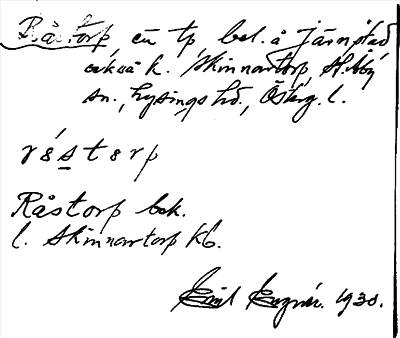 Råstorp, en tp, bel. å Järnstad
också k. Skinnartorp, St. Åby
sn., Lysings hd., Östg. l.
råstorp
Råstorp bek.
l. Skinnartorp Kb.
Emil 1930.